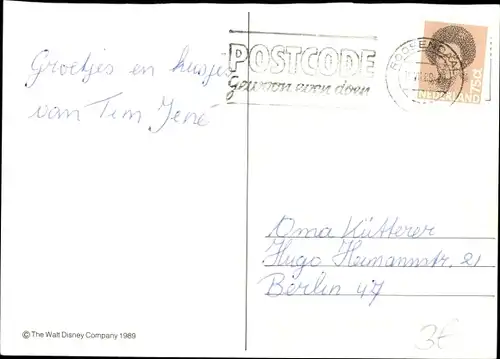 Groetjes en kusjes
van Tim René
POSTCODE
Gewoon even doen
ROOSENDAAL
NEDERLAND 75 ct
Oma Kütterer
Hugo Heimannstr. 21
Berlin 47
© The Walt Disney Company 1989
3€